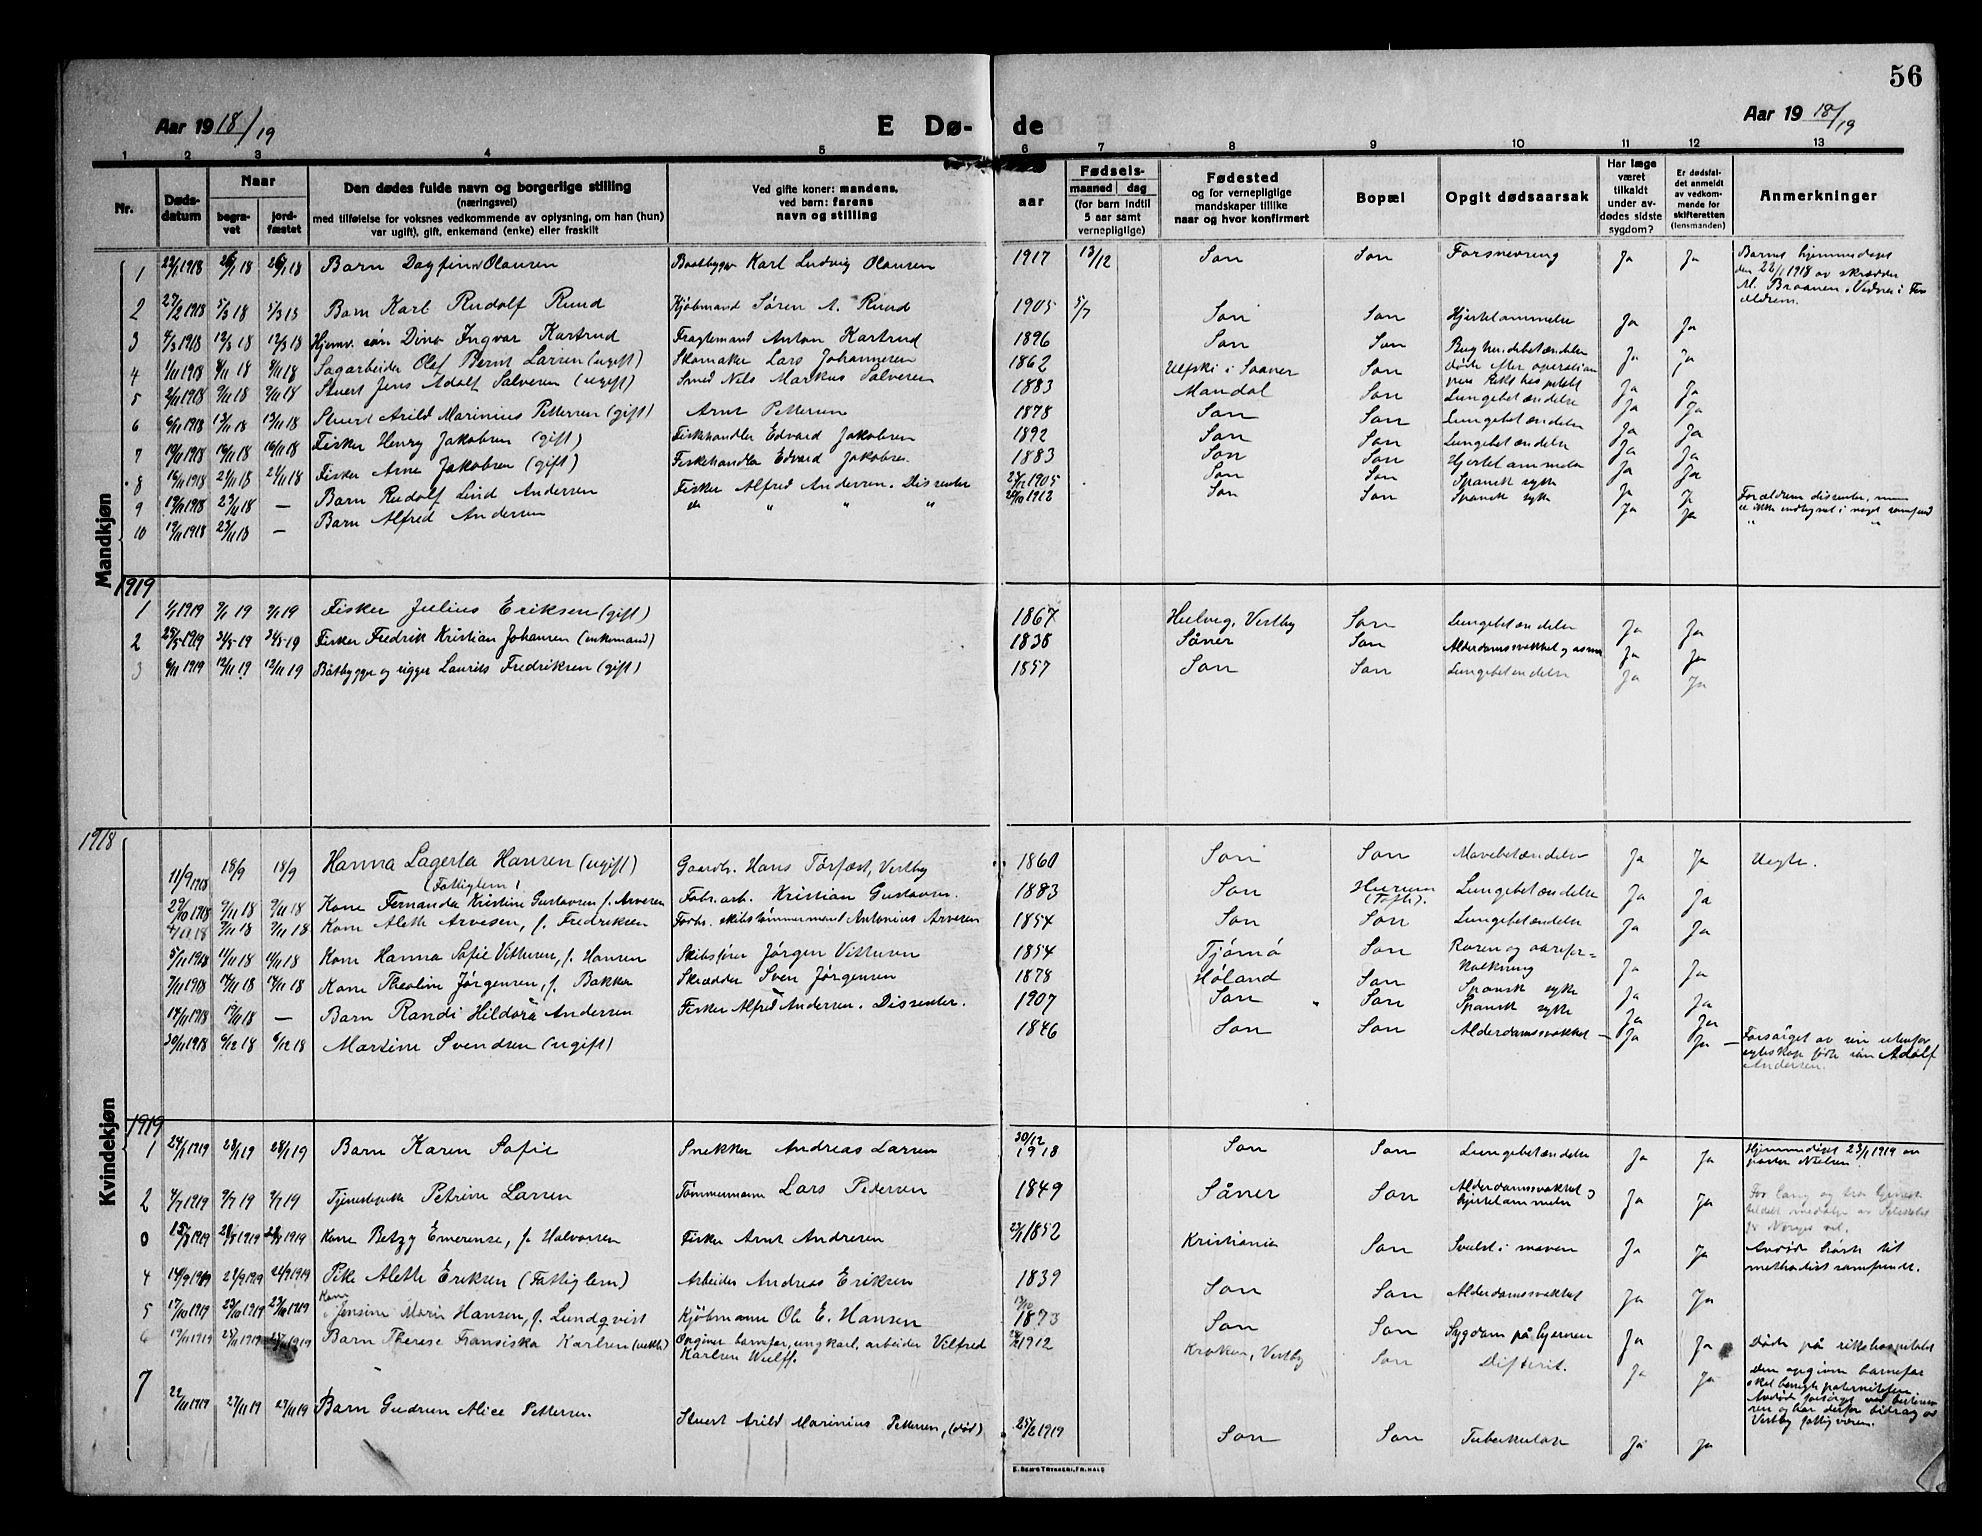 56
Aar 1918/19
E Dø-
de
Aar 1918/19
1 2 3 4 5 6 7 8 9 10 11 12 13
Nr.
Døds-
datum
Naar
begra-
vet
jord-
fæstet
Den dødes fulde navn og borgerlige stilling
(næringsvei)
med tilføielse for voksnes vedkommende av oplysning, om han (hun)
var ugift), gift, enkemand (enke) eller fraskilt
Ved gifte koner: mandens,
ved barn: farens
navn og stilling
Fødsels-
aar
maaned dag
(for barn indtil
5 aar samt
vernepligtige)
Fødested
og for vernepligtige
mandskaper tillike
naar og hvor konfirmert
Bopæl
Opgit dødsaarsak
Har læge
været
tilkaldt
under av-
dødes sidste
sygdom?
Er dødsfal-
det anmeldt
av vedkom-
mende for
skifteretten
(lensmanden)
Anmerkninger
Mandkjøn
1 Barn Dagfinn Olausen Baatbygger Karl Ludvig Olausen 1917 13/12 Son Son Forsnevring Ja Ja Barnet hjemmedøpt
den 22/1 1918 av skrædder
M. Braanen
2 27/2 1918 5/3 18 5/3 18 Barn Karl Rudolf Ruud Kjøbmand Søren A. Ruud 1905 5/7 Son Son Hjertelammelse Ja Ja
3 12/3 18 12/3 18 Hjemv. søn Ingvar Kartrud Fragtemand Anton Kartrud 1896 Son Son Bughindebetændelse Ja Ja
4 1/11 1918 Sagarbeider Olaf Bernt Larsen (ugift) Skomaker Lars Johannesen 1862 i Saaner Son døde efter operation Ja Ja
5 Stuert Jens Adolf Salvesen (ugift) Smed Nils Markus Salvesen 1883 Mandal Son Lungebetændelse Ja Ja
6 6/11 1918 13/11 18 13/11 18 Stuert Arild Marinius Pettersen (gift) Arnt Pettersen 1878 Son Son Lungebetændelse Ja Ja
7 16/11 18 16/11 18 Fisker Henry Jakobsen (gift) Fiskehandler Edvard Jakobsen 1892 Son Son Lungebetændelse Ja Ja
8 21/11 18 21/11 18 Fisker Arne Jakobsen (gift) Fiskehandler Edvard Jakobsen 1883 Son Son Hjertelammelse Ja Ja
9 19/11 1918 23/11 18 — Barn Rudolf Lind Andersen Fisker Alfred Andersen. Dissenter 1905 Son Son Spansk syke Ja Ja Forældrene dissenter, men
er ikke indtegnet i noget samfund
10 19/11 1918 23/11 18 — Barn Alfred Andersen do " " " 1912 Son Son Spansk syke Ja Ja " "
1919
1 Fisker Julius Eriksen (gift) 1867 Hulvig, Vestby Son Lungebetændelse Ja Ja
2 Fisker Fredrik Kristian Johansen (enkemand) 1838 Såner Son Alderdomssvakhet og asma Ja Ja
3 6/11 1919 12/11 19 12/11 19 Båtbygger og rigger Laurits Fredriksen (gift) 1857 Son Son Lungebetændelse Ja Ja
1918
Kvindekjøn
11/9 1918 18/9 18/9 Hanna Lagerta Hansen (ugift) Gaardbr. Hans Torfæst, Vestby 1860 Son Son Mavebetændelse Ja Ja Uegte.
(Fattiglem)
9/11 18 9/11 18 Kone Fernanda Kristine Gustavsen f. Arvesen Fabr.arb. Kristian Gustavsen. 1883 Son Hurum
(Tofte). Lungebetændelse Ja Ja
9/11 18 9/11 18 Kone Aleth Arvesen, f. Fredriksen Forh. skibstømmermand Antonius Arvesen 1854 Son Son Lungebetændelse Ja Ja
5/11 1918 11/11 18 11/11 18 Kone Hanna Sofie Vittersen, f. Hansen Skibsfører Jørgen Vittersen 1854 Tjømø Son Rosen og aarefor-
kalkning Ja Ja
14/11 18 14/11 18 Kone Theoline Jørgensen, f. Bakker Skrædder Sven Jørgensen 1878 Høland Son Spansk syke Ja Ja
14/11 1918 19/11 18 — Barn Randi Hildora Andersen Fisker Alfred Andersen. Dissenter. 1907 Son Son Spansk syke Ja Ja
30/11 1918 6/12 18 6/12 18 Martine Svendsen (ugift) 1846 Son Son Alderdomssvakhet — Ja Ja — Forsørget av sin utenfor
egteskap fødte søn Adolf
Andersen.
1919
1 24/1 1919 28/1 19 28/1 19 Barn Karen Sofie Snekker Andreas Larsen 30/12
1918 Son Son Lungebetændelse Ja Ja Hjemmedøpt 23/1 1919 av
pastor Nielsen.
2 4/7 1919 9/7 19 9/7 19 Tjenestepike Petrine Larsen Tømmermann Lars Pedersen 1849 Såner Son Alderdomssvakhet
hjertelammelse Ja Ja For lang og tro tjeneste
tildelt medalje av Selskabet
for Norges vel.
0 15/8 1919 20/8 1919 Kone Betzy Emerense, f. Halvorsen Fisker Arnt Andresen 1852 Kristiania Son Svulst i maven Ja Ja Avdøde hørte til
methodistsamfundet.
4 14/9 1919 21/9 1919 21/9 1919 Pike Alette Eriksen (Fattiglem) Arbeider Andreas Eriksen 1839 Son Son Alderdomssvakhet Ja Ja
5 17/10 1919 23/10 1919 23/10 1919 Kone
Jensine Marie Hansen, f. Lundqvist Kjøbmann Ole E. Hansen 1873 Son Son Sygdom på hjernen Ja Ja
6 19/11 1919 Barn Therese Fransiska Karlsen (uekte) Opgiven barnefar, ungkarl, arbeider Vilfred
Karlsen Wulff. 1912 Kroken, Vestby Son Difterit. Ja Ja Døde på rikshospitalet
Den opgivne barnefar
skal benegte paterniteten.
Vestby fattigvæsen.
7 22/11 1919 27/11 19 27/11 19 Barn Gudrun Alice Pettersen. Stuert Arild Marinius Pettersen, (død) 1919 Son Son Tuberkulose Ja Ja
E. SEM'S TRYKKERI, FR.HALD